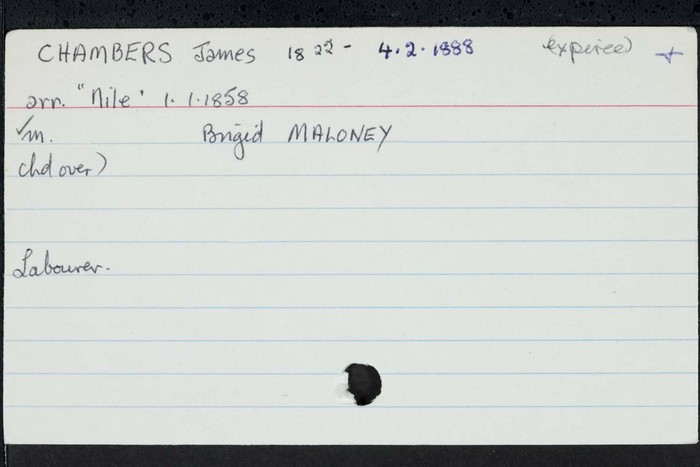 CHAMBERS James 1822 - 4.2.1888 (expiree) +
arr. "Nile" 1.1.1858
✓m. Brigid MALONEY
chd over)
Labourer.